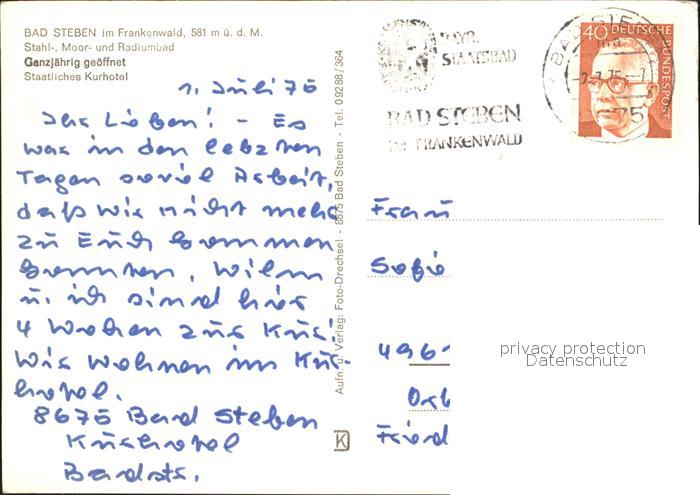 BAD STEBEN im Frankenwald, 581 m ü. d. M.
Stahl-, Moor- und Radiumbad
Ganzjährig geöffnet
Staatliches Kurhotel
1. Juli 75
Ihr Lieben! - Es
war in den letzten
Tagen soviel Arbeit,
daß wir nicht mehr
zu Euch kommen
konnten. Wilm
u. ich sind hier
4 Wochen zur Kur!
Wir wohnen im Kur-
hotel.
8675 Bad Steben
Kurhotel
Badstr.
Aufn. u. Verlag: Foto-Drechsel - 8675 Bad Steben - Tel. 09288/364
K
BAYR.
STAATSBAD
BAD STEBEN
IM FRANKENWALD
40 DEUTSCHE
BUNDESPOST
BAD STEBEN
75
Frau
Sofie
Fried
privacy protection
Datenschutz